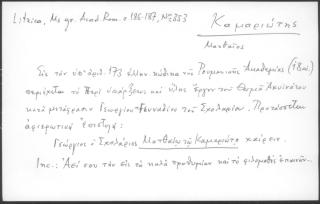 Litzica, Ms gr. Acad Rom. σ 186-187, Nº 253
Καμαριώτης
Ματθαῖος
Εἰς τὸν ὑπ' ἀριθ. 173 ἑλλην. κώδικα τῆς Ρουμανικῆς Ἀκαδημίας (18 αἰ.)
περιέχεται τὸ Περὶ ὑπάρξεως καὶ ὕλης ἔργον τοῦ Θωμᾶ Ἀκινάτου
κατὰ μετάφρασιν Γεωργίου Γενναδίου τοῦ Σχολαρίου. Προτάσσεται
ἀφιερωτικὴ ἐπιστολή:
Γεώργιος ὁ Σχολάριος Ματθαίῳ τῷ Καμαριώτῃ χαίρειν.
Inc.: Ἀεί σου τὴν εἰς τὰ καλὰ προθυμίαν καὶ τὸ φιλομαθὲς ἐπαινῶν.